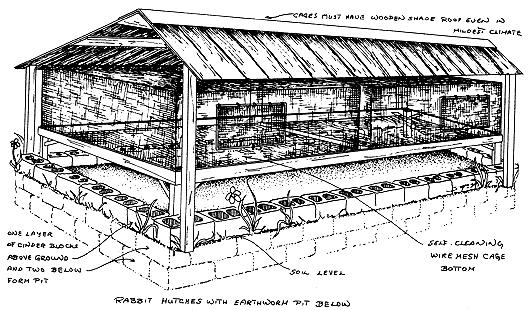 CAGES MUST HAVE WOODEN SHADE ROOF EVEN IN
MILDEST CLIMATE
ONE LAYER
OF CINDER BLOCKS
ABOVE GROUND
AND TWO BELOW
FORM PIT
SOIL LEVEL
SELF-CLEANING
WIRE MESH CAGE
BOTTOM
RABBIT HUTCHES WITH EARTHWORM PIT BELOW